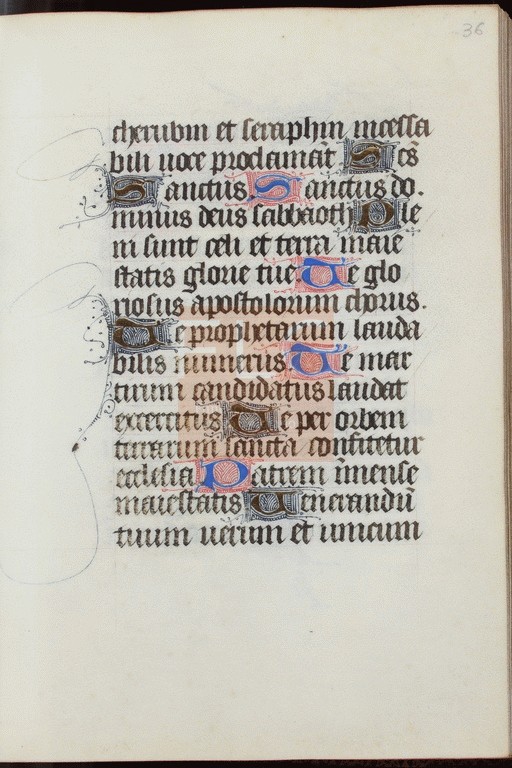 36
cherubin et seraphin incessa
bili uoce proclamāt Scs̄
Sanctus Sanctus do.
minus deus sabbaoth Ple
ni sunt celi et terra maie
statis glorie tue. Te glo
riosus apostolorum chorus.
Te prophetarum lauda
bilis numerus. Te mar
tirum candidatus laudat
exercitus Te per orbem
terrarum sancta confitetur
ecclesia Patrem īmense
maiestatis Uenerandū
tuum uerum et unicum